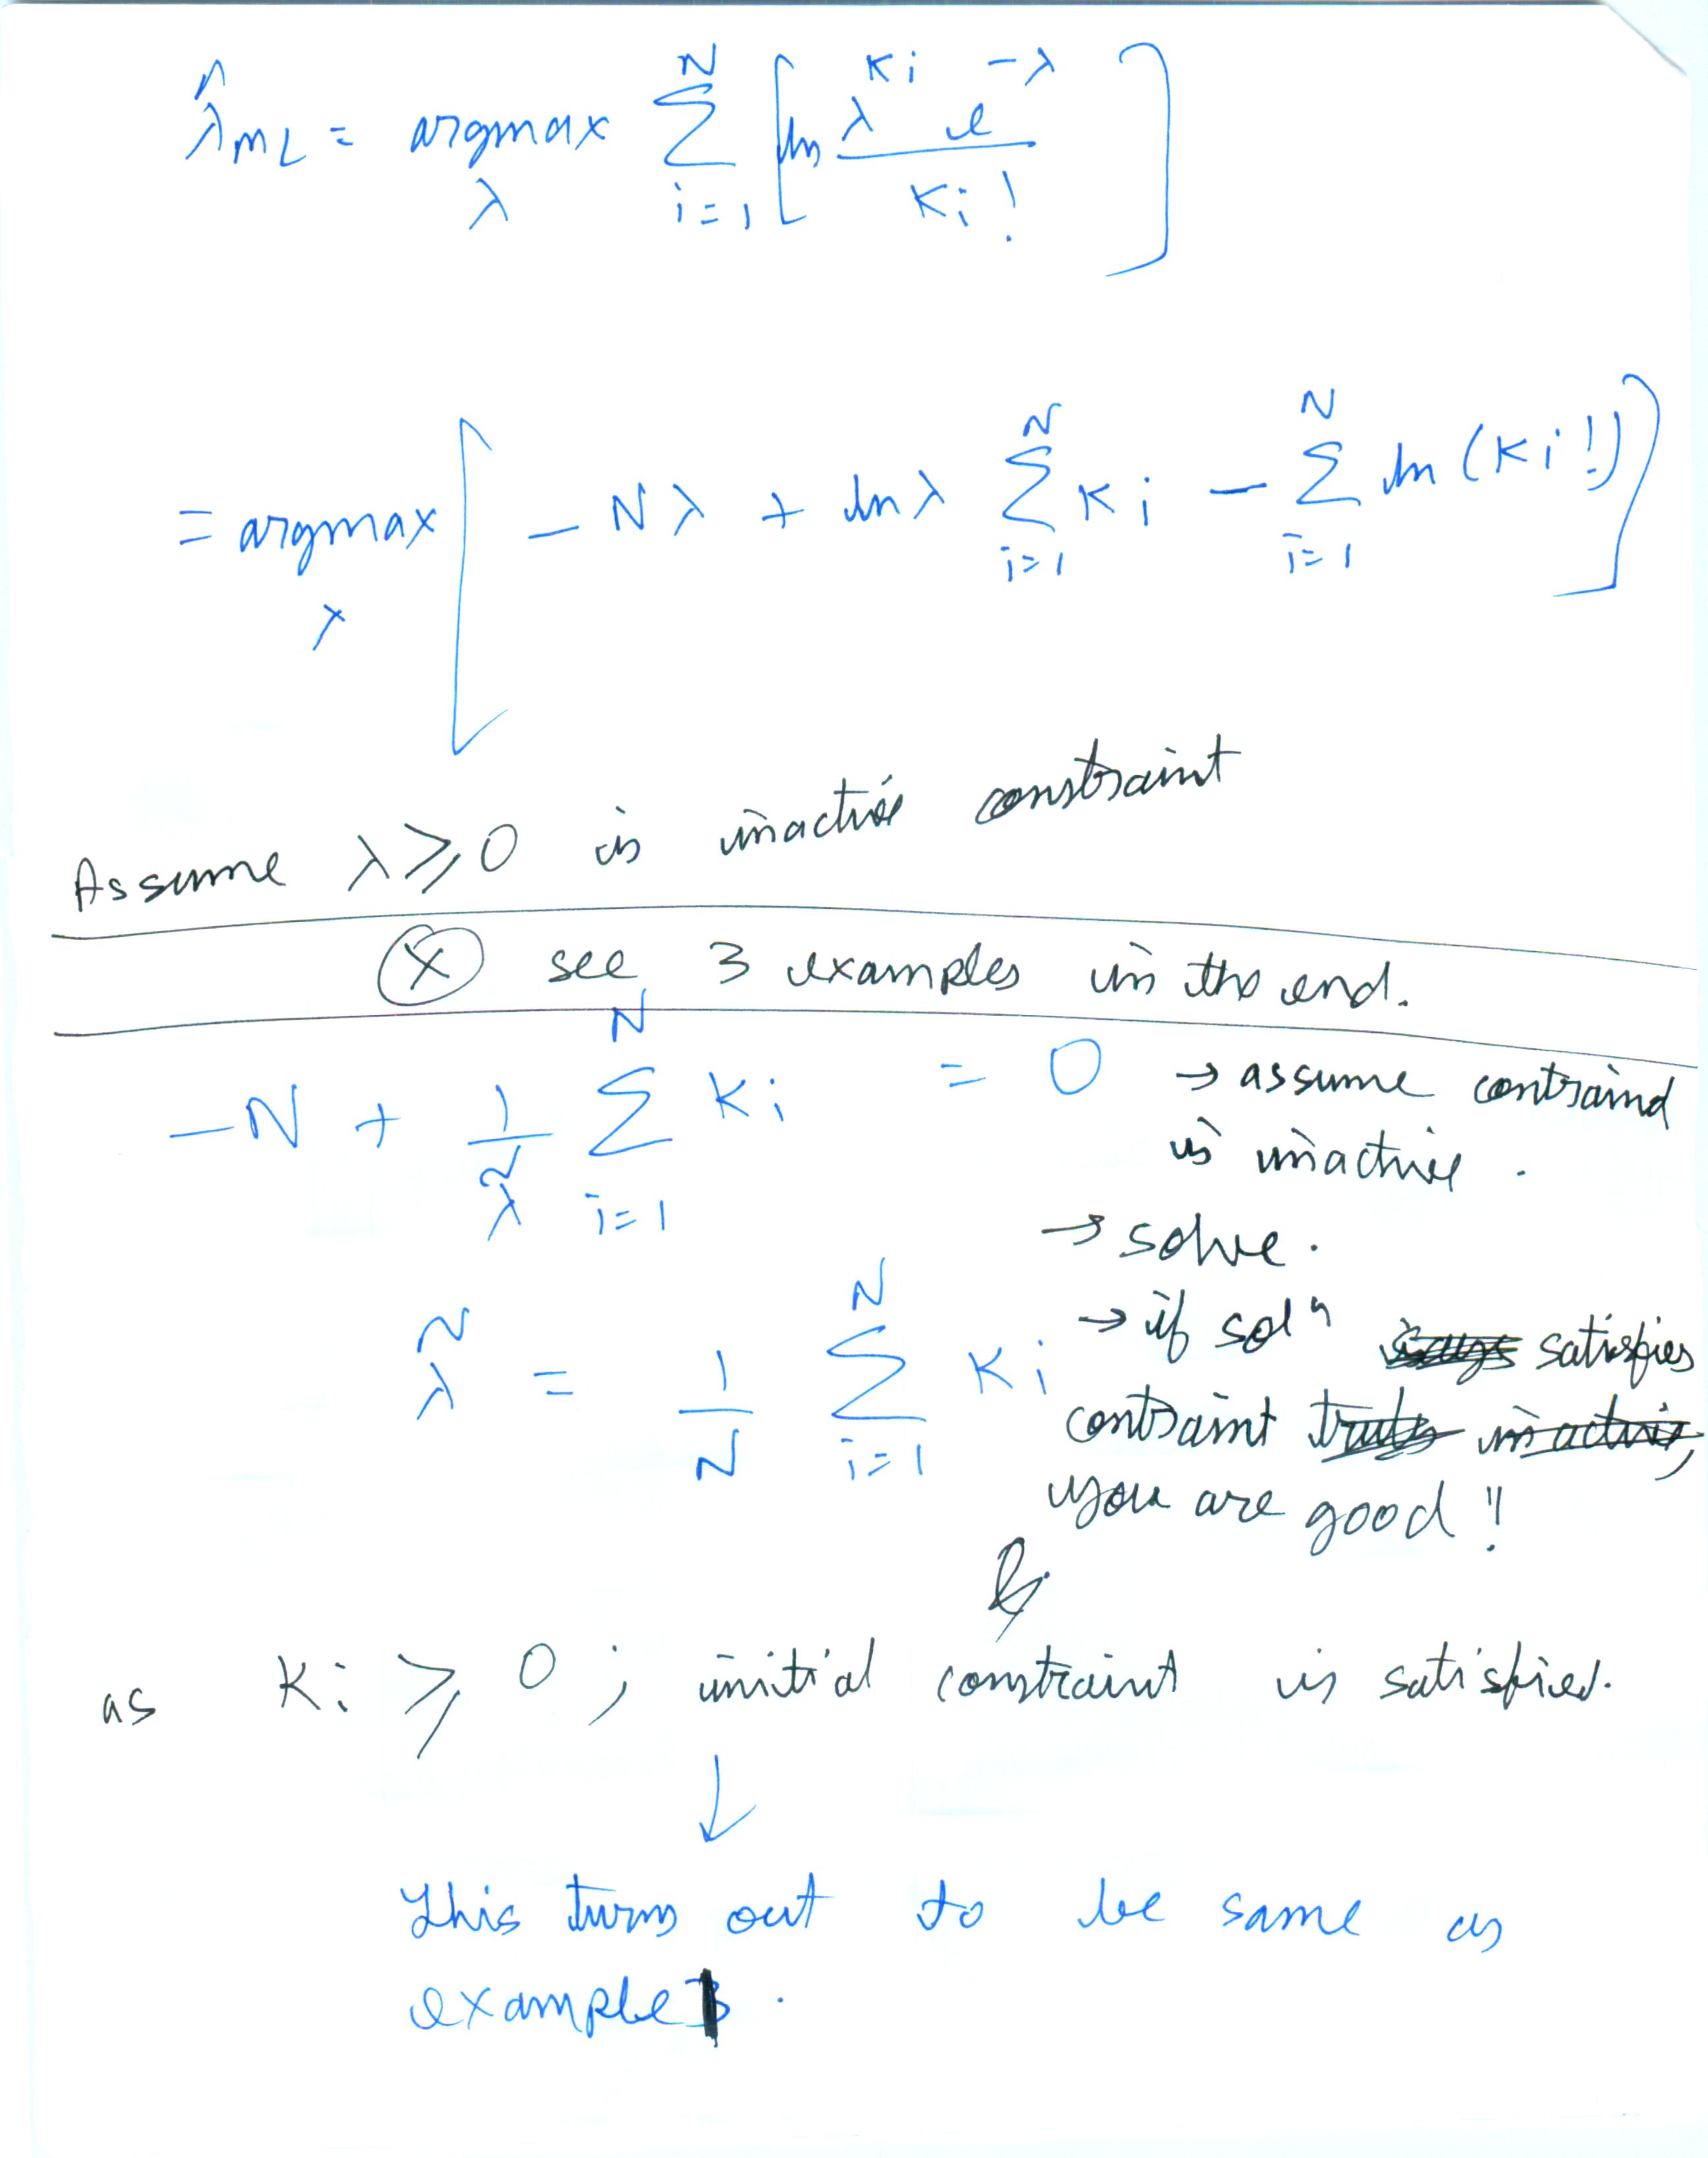 λ̂ML = argmax_λ Σ_{i=1}^{N} [ ln (λ^{Ki} e^{-λ}) / Ki! ]
= argmax_λ [ - Nλ + ln λ Σ_{i=1}^{N} Ki - Σ_{i=1}^{N} ln (Ki!) ]
Assume λ ≥ 0 is inactive constraint
(X) see 3 examples in the end.
-N + (1/λ̃) Σ_{i=1}^{N} Ki = 0
→ assume contraind
is inactive .
→ solve.
→ if solⁿ satisfies
contraint truly inactive,
you are good !
λ̃ = (1/N) Σ_{i=1}^{N} Ki
as Ki ≥ 0 ; initial constraint is satisfied.
↓
This turns out to be same as
example .